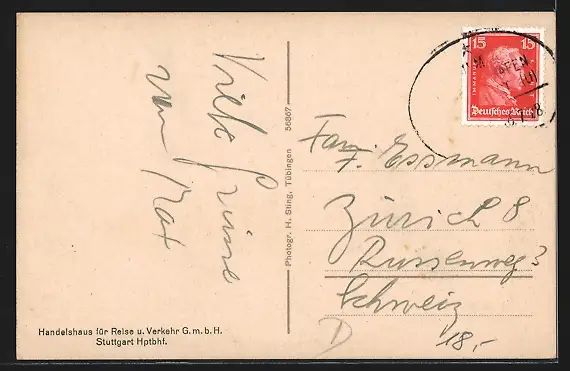 Viele Grüsse
von Max
Handelshaus für Reise u. Verkehr G.m.b.H.
Stuttgart Hptbhf.
Photogr. H. Sting, Tübingen 56867
15 15
IMMANUEL
Deutsches Reich
Fam.
F. Essmann
Zürich 8
Russenweg
Schweiz
D
18,-